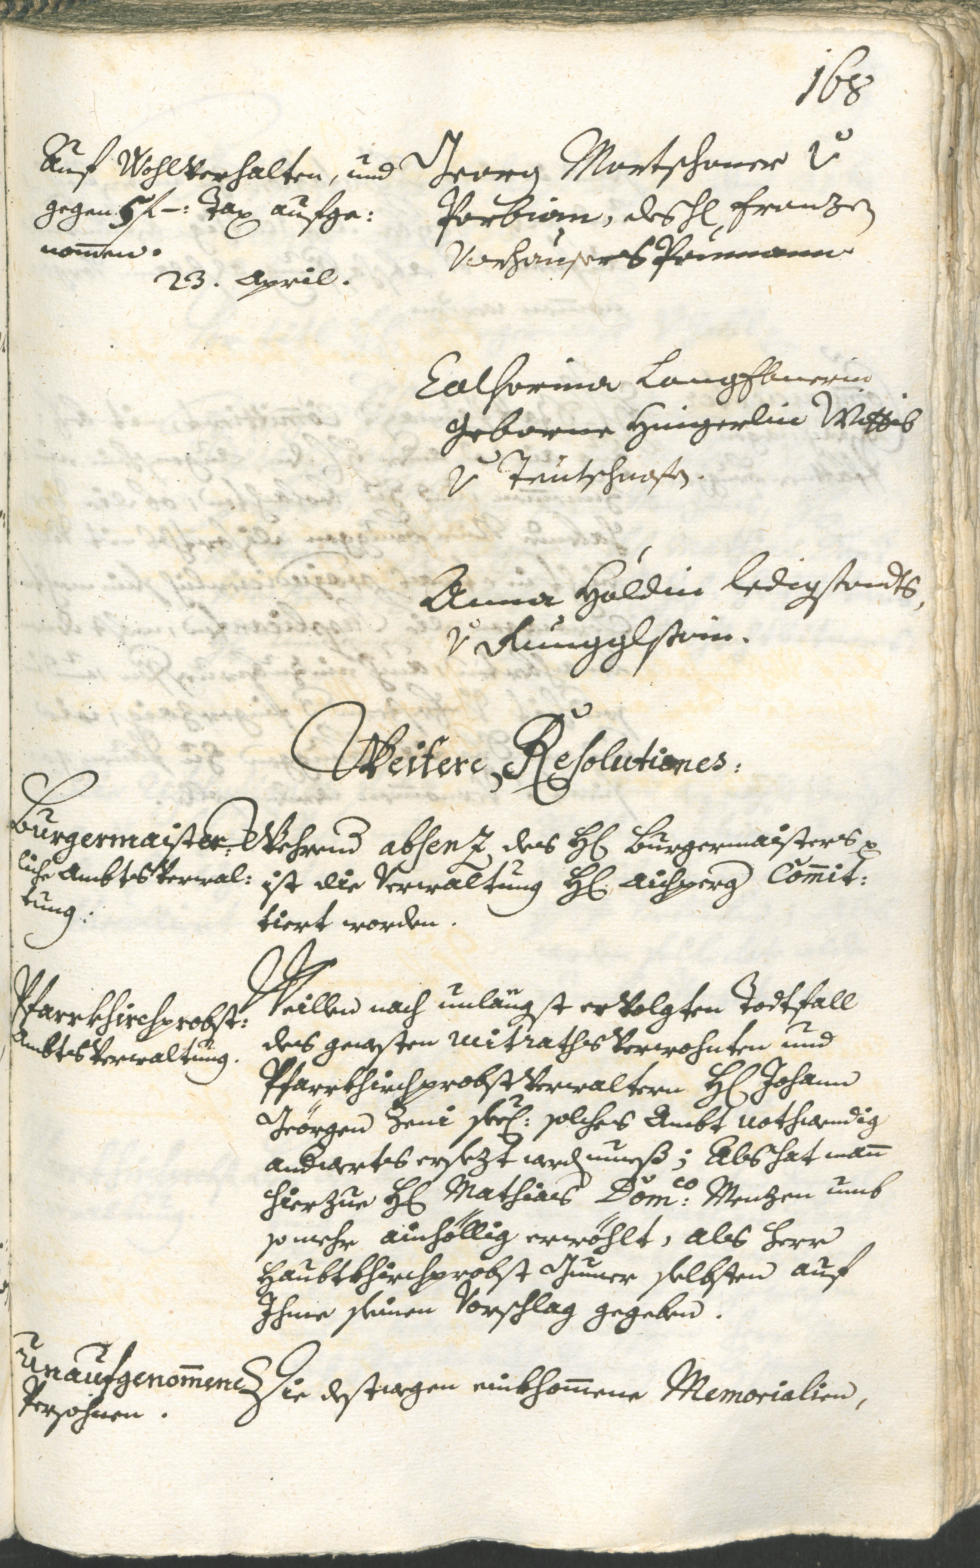 168
Auf Wohlverhalten, und
gegen 5 f –: Tax aufge:
nom̄en.
23. April.
Georg Mortschaner v
Barbian, des H. Franzen
Vorhausers Paumann
Catharina Langebnerin
Geborne Hingerlin Wittib
v Teütschnofen.
Anna Höldin ledigstandts,
v Runggelstain.
Weitere Resolutiones:
Burgermaister:
liche Ambtsverwal:
tung:
Wehrend absenz des H. Burgermaisters
ist die Verwaltung H. Aichperg Com̄it:
tiert worden.
Pfarrkhirchprobst:
Ambtsverwaltung.
Weillen nach unlängst ervolgten Todtfall
des gewesten mitrathsverwohnten und
Pfarrkhirchprobstverwaltern H. Johann
Geörgen Zeni seel: solches Ambt nothwendig
andwerts ersezt werden mueß; Als hat man̄
hierzue H. Mathias Dom.co Menzen umb
so mehr ainhöllig erwöhlt, als Herr
Haubtkhirchprobst Gumer selbsten auf
Ihme seinen Vorschlag gegeben.
Unaufgenom̄ene
Persohnen.
Die destwegen einkhom̄ene Memorialien,